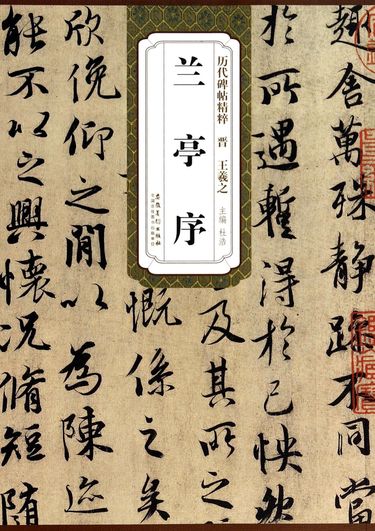 趣舍萬殊静躁不同當
於所遇蹔得於己怏然
历代碑帖精粹 晋 王羲之
主编 杜浩
兰亭序
安徽美术出版社
及其所之
慨係之矣
欣俛仰之閒以為陳迹
能不以之興懷況脩短随